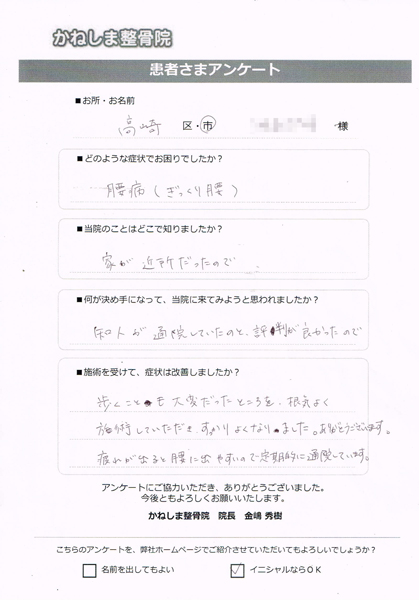 かねしま整骨院
患者さまアンケート
■お所・お名前
高崎 区・市 様
■どのような症状でお困りでしたか?
腰痛(ぎっくり腰)
■当院のことはどこで知りましたか?
家が近所だったので
■何が決め手になって、当院に来てみようと思われましたか?
知人が通院していたのと、評判が良かったので
■施術を受けて、症状は改善しましたか?
歩くことも大変だったところを、根気よく
施術していただき、すっかりよくなりました。ありがとうございます。
疲れが出ると腰に出やすいので定期的に通院しています。
アンケートにご協力いただき、ありがとうございました。
今後ともよろしくお願いいたします。
かねしま整骨院 院長 金嶋 秀樹
こちらのアンケートを、弊社ホームページでご紹介させていただいてもよろしいでしょうか?
名前を出してもよい ✓ イニシャルならOK